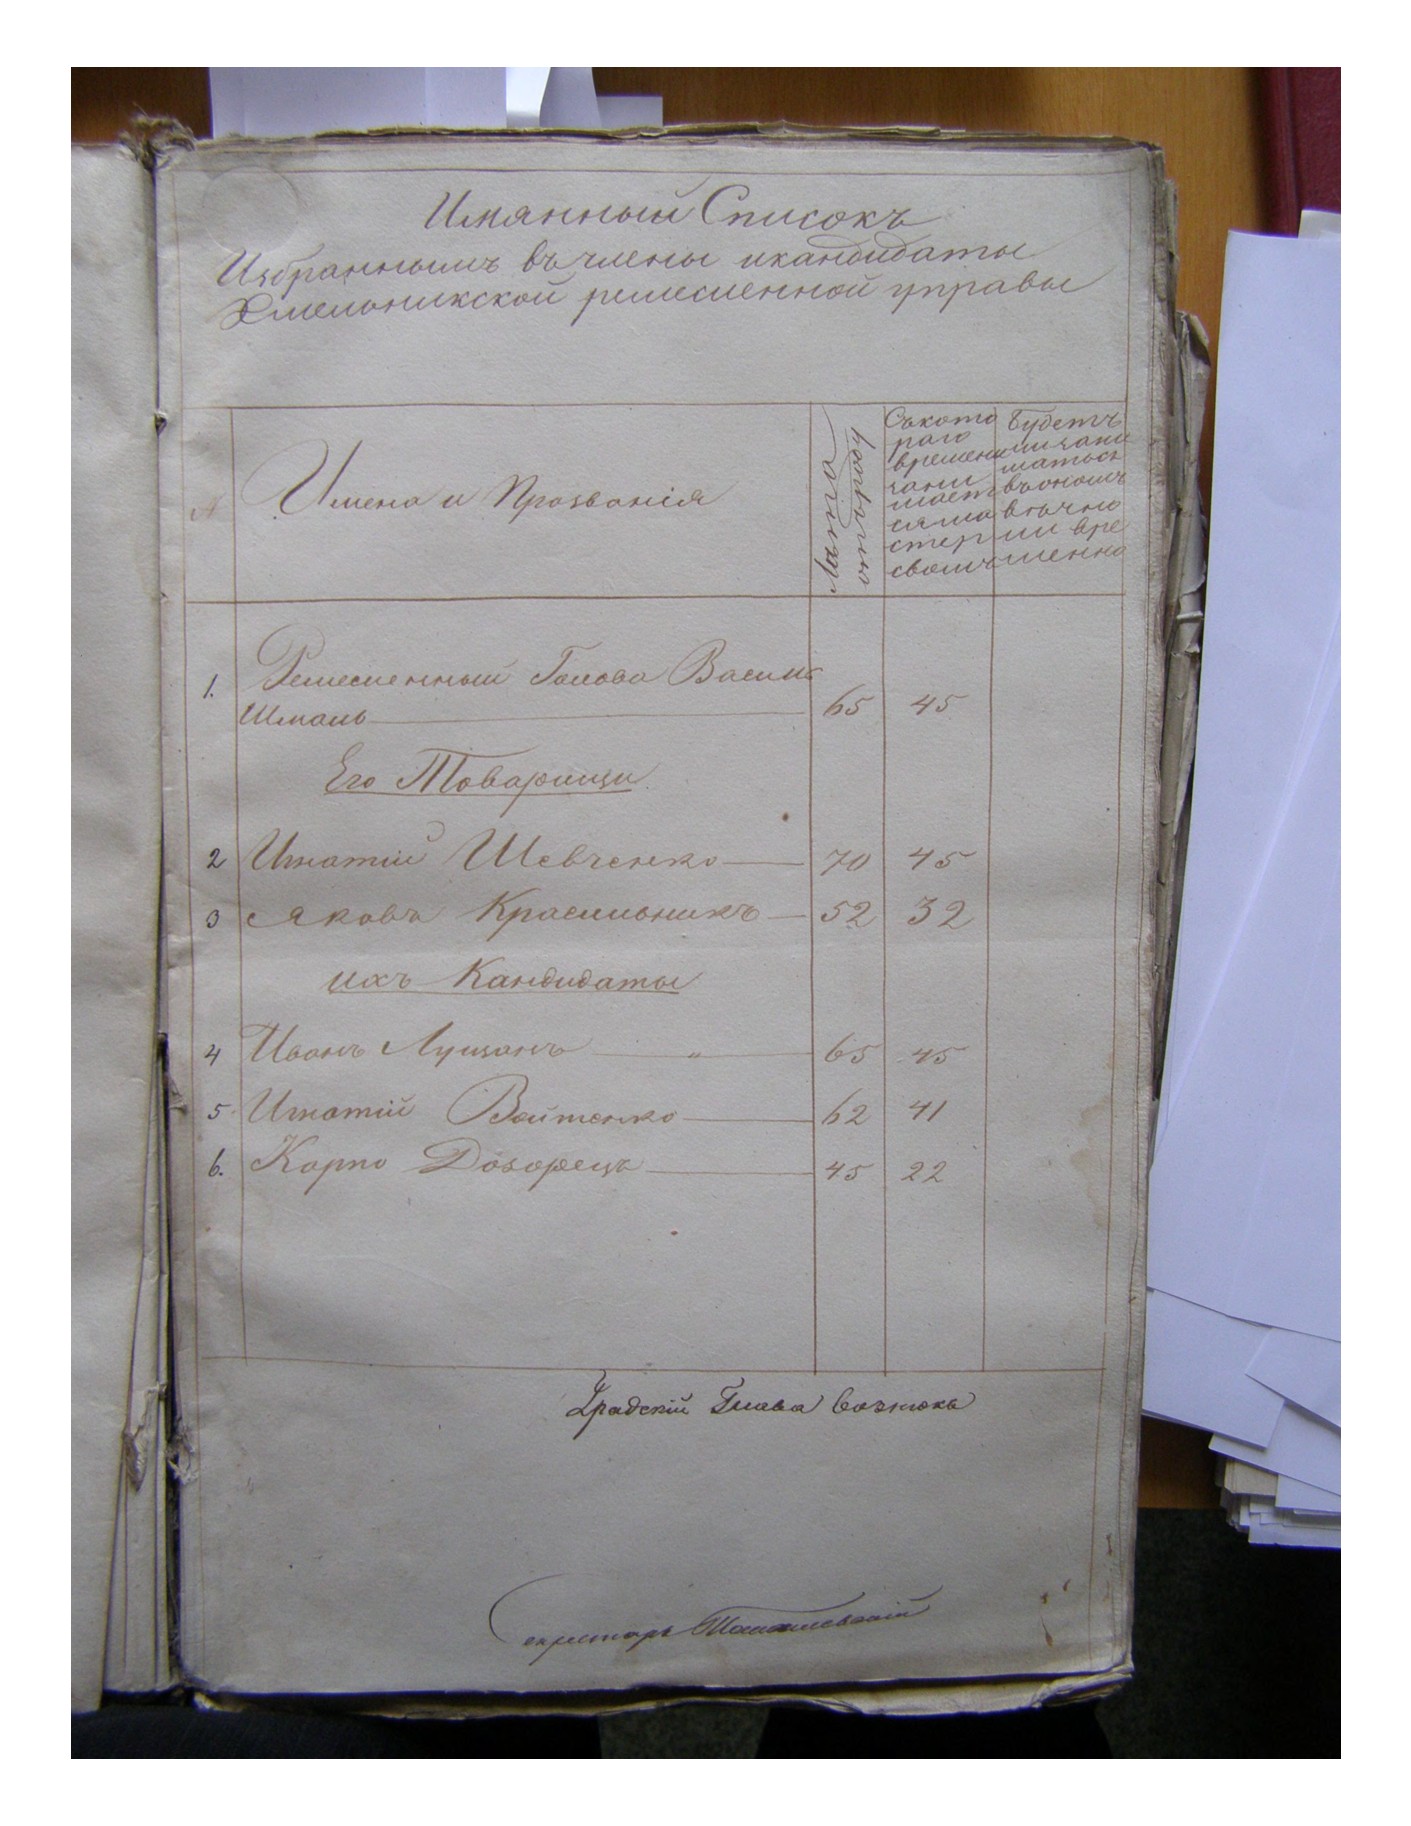 Имянный Списокъ
Избраннымъ въ члены и кандидаты
Хмельникской ремесленной управы
Имена и Прозванія
Лѣта
отъ роду
Съ кото
раго
времени
зани
мает
ся ма
стер
свомъ
Будетъ
ли зани
маться
въ ономъ
вѣчно
или вре
менно
1. Ремесленный Голова Василь
Шмаль 65 45
Его Товарищи
2 Игнатій Шевченко 70 45
3 Яковъ Красильникъ 52 32
ихъ Кандидаты
4 Иванъ Лущанъ " 65 45
5 Игнатій Войтенко 62 41
6. Карпо Дозорецъ 45 22
Градскій Глава Вознюкъ
Секретарь